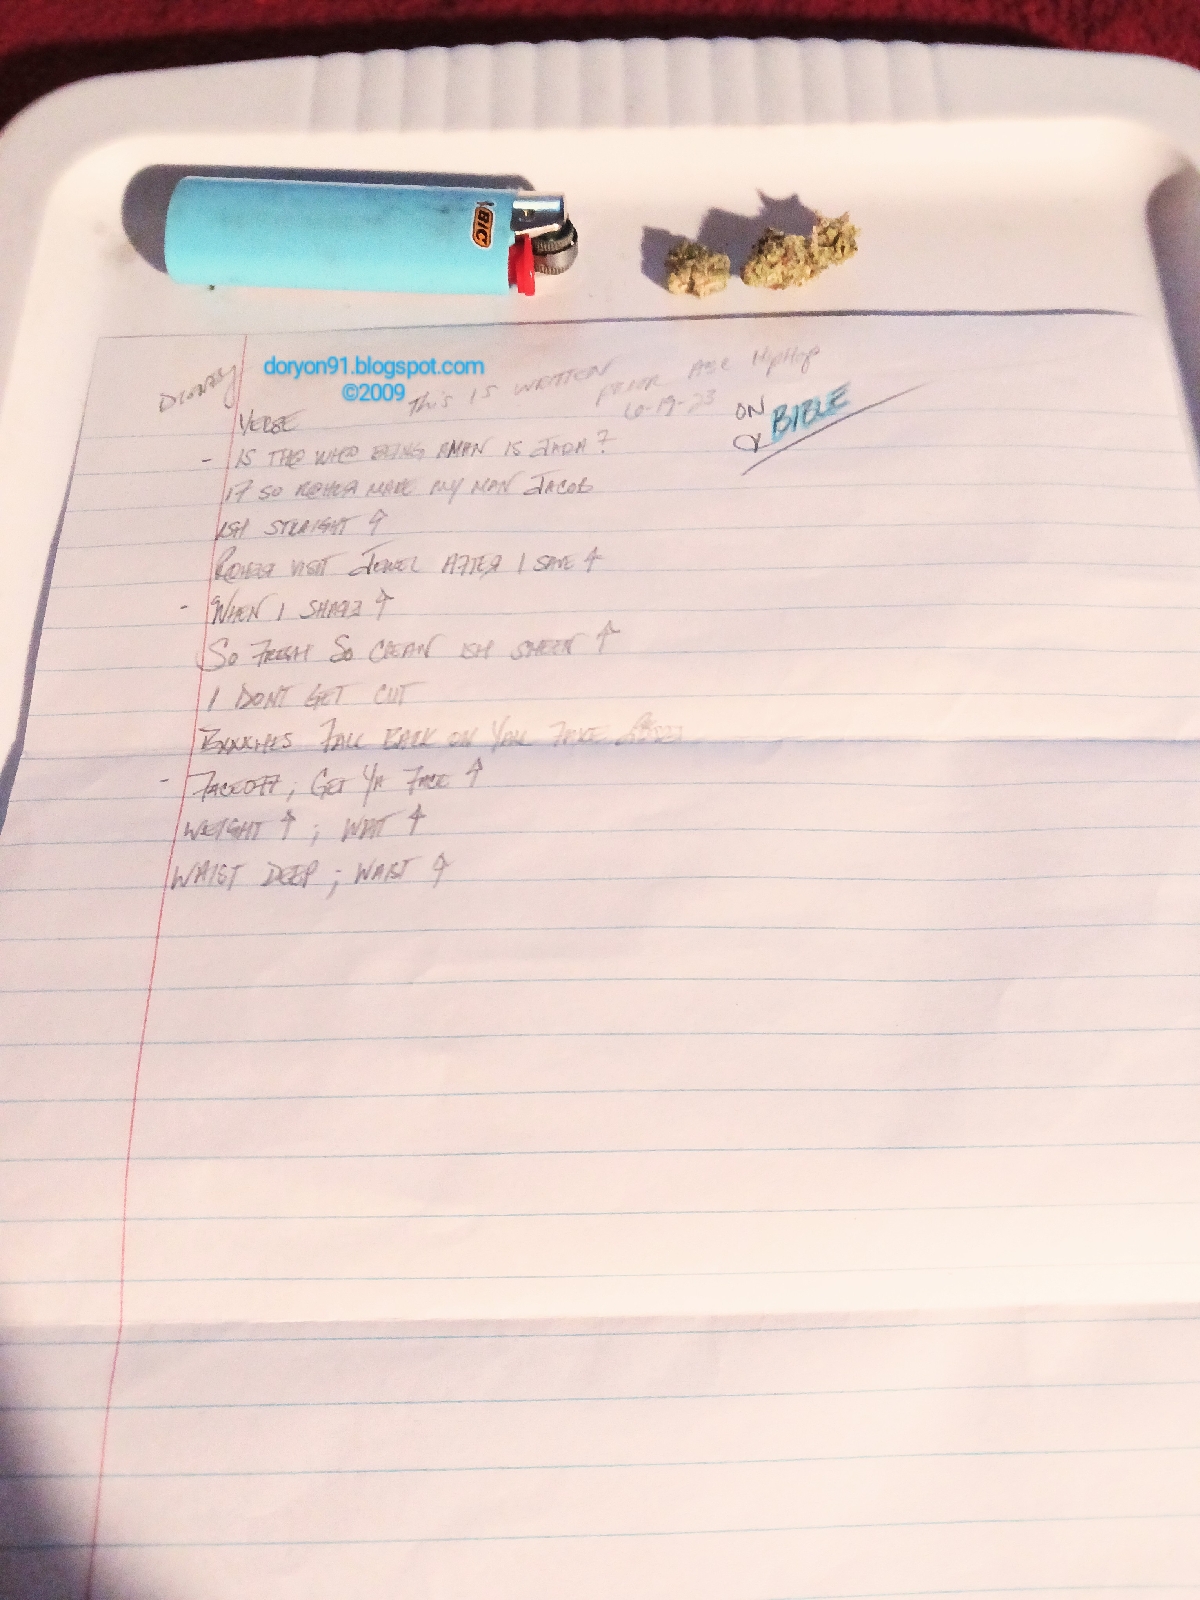 BIC
doryon91.blogspot.com
©2009
THIS IS WRITTEN
HipHop
6-19-23
ON
BIBLE
VERSE
- IS THE WHO BEING AMAN IS JADA?
MAKE MY MAN JACOB
ISH STRAIGHT ↑
VISIT JEWEL AFTER I SAVE ↑
- WHEN I SHARE ↑
SO FRESH SO CLEAN ISH SHEEN ↑
I DONT GET CUT
FALL BACK ON YALL FAKE
- FACEOFF; GET YA FACE ↑
WEIGHT ↑; WAIT ↑
WAIST DEEP; WAIST ↑